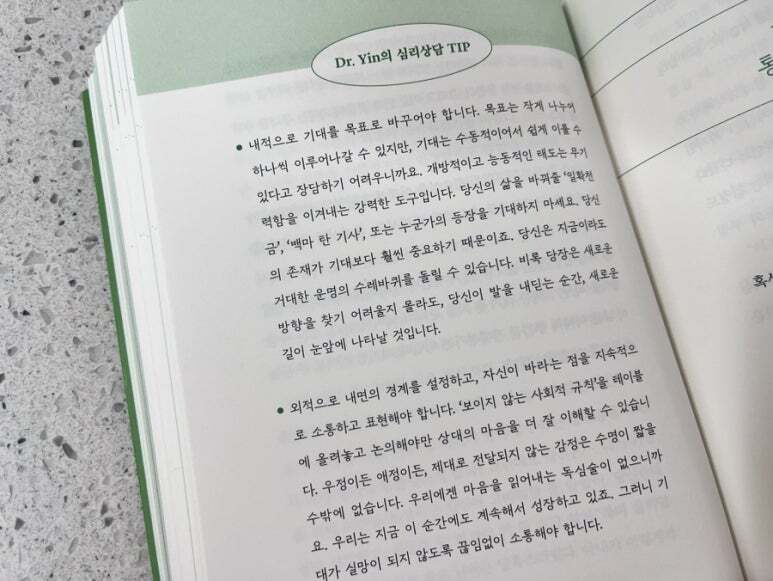 Dr. Yin의 심리상담 TIP
• 내적으로 기대를 목표로 바꾸어야 합니다. 목표는 작게 나누어
하나씩 이루어나갈 수 있지만, 기대는 수동적이어서 쉽게 이룰 수
있다고 장담하기 어려우니까요. 개방적이고 능동적인 태도는 무기
력함을 이겨내는 강력한 도구입니다. 당신의 삶을 바꿔줄 ‘일확천
금’, ‘백마 탄 기사’, 또는 누군가의 등장을 기대하지 마세요. 당신
의 존재가 기대보다 훨씬 중요하기 때문이죠. 당신은 지금이라도
거대한 운명의 수레바퀴를 돌릴 수 있습니다. 비록 당장은 새로운
방향을 찾기 어려울지 몰라도, 당신이 발을 내딛는 순간, 새로운
길이 눈앞에 나타날 것입니다.
• 외적으로 내면의 경계를 설정하고, 자신이 바라는 점을 지속적으
로 소통하고 표현해야 합니다. ‘보이지 않는 사회적 규칙’을 테이블
에 올려놓고 논의해야만 상대의 마음을 더 잘 이해할 수 있습니
다. 우정이든 애정이든, 제대로 전달되지 않는 감정은 수명이 짧을
수밖에 없습니다. 우리에겐 마음을 읽어내는 독심술이 없으니까
요. 우리는 지금 이 순간에도 계속해서 성장하고 있죠. 그러니 기
대가 실망이 되지 않도록 끊임없이 소통해야 합니다.